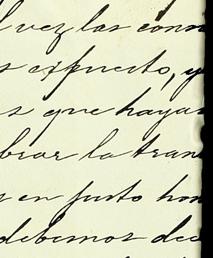 l vez las conm
s expuesto, y
s que hayan
brar la tran
s en justo hon
debemos dec